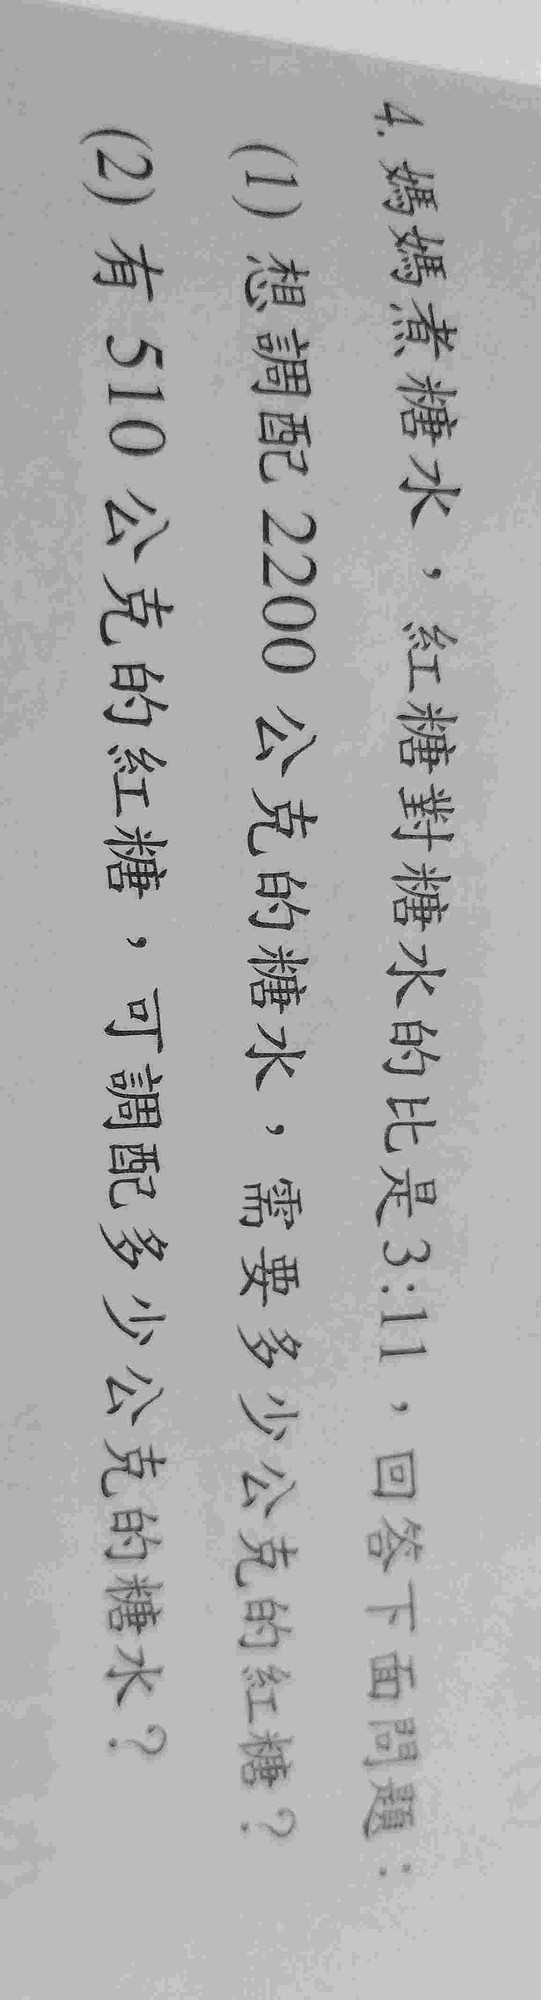 4. 媽媽煮糖水，紅糖對糖水的比是3:11，回答下面問題：
(1) 想調配 2200 公克的糖水，需要多少公克的紅糖？
(2) 有 510 公克的紅糖，可調配多少公克的糖水？